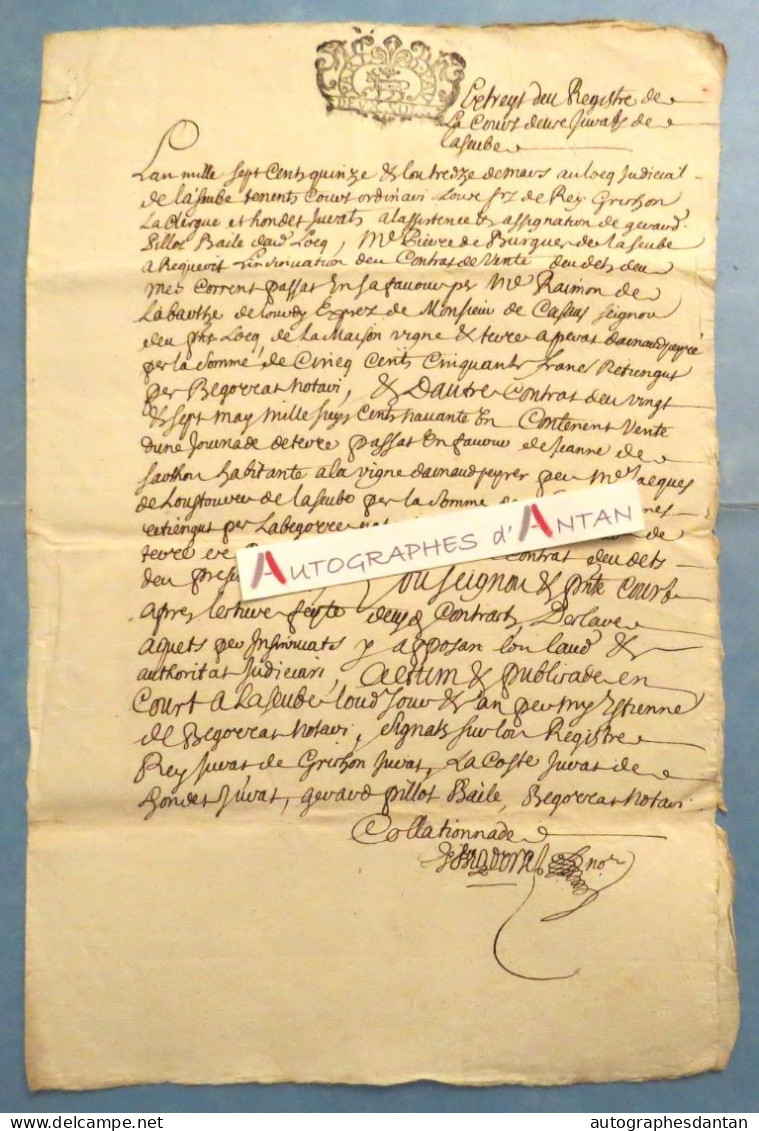 Extreyt deu Registre de
La Court deus Jurats de
Laseube
L'an mille sept cents quinze & lou tredze de mars au locq Judiciat
de Laseube tenents Court ordinari Lous srs de Rey Grichon
Laclergue et hondet Jurats a lassistence & assignation de geraud
Pillot Baile deud Locq, Me Pierre de Burgues de Laseube
a Requerit Linsinuation deu Contrat de Vente deu dets deu
mes Corrent passat En sa favour per Me Raimon de
Labarthe de Exprez de Monsieur de Casaus seignou
deu pnt Locq, de La Maison vigne & terre aperat darnaudpeyré
per la somme de Cincq Cents Cinquante francs Retiengut
per Begorrat Notari, & Dautre Contrat deu vingt
& sept may mille sieys Cents navante En Contenent Vente
dune Journade de terre passat En favour de Jeanne de
sarthou habitante a la vigne darnaudpeyrer per Me Jacques
de Loustouner de Laseube per la somme
retiengut per Labegorre
terre de
deu Contrat deu dets
Lou seignou & pnte Court
apres lecture feyte deus Contracts, Declare
aquets per Insinuats y apposan lou laud &
authoritat Judiciari, aestim & publicade en
Court a Laseube loud Jour & an per my Estienne
de Begorrat Notari, signats sur lou Registre
Rey Jurat de Grichon Jurat, La Coste Jurat de
hondet Jurat, geraud pillot Baile, Begorrat Notari
Collationnade
not
AUTOGRAPHES d'ANTAN
autographesdantan